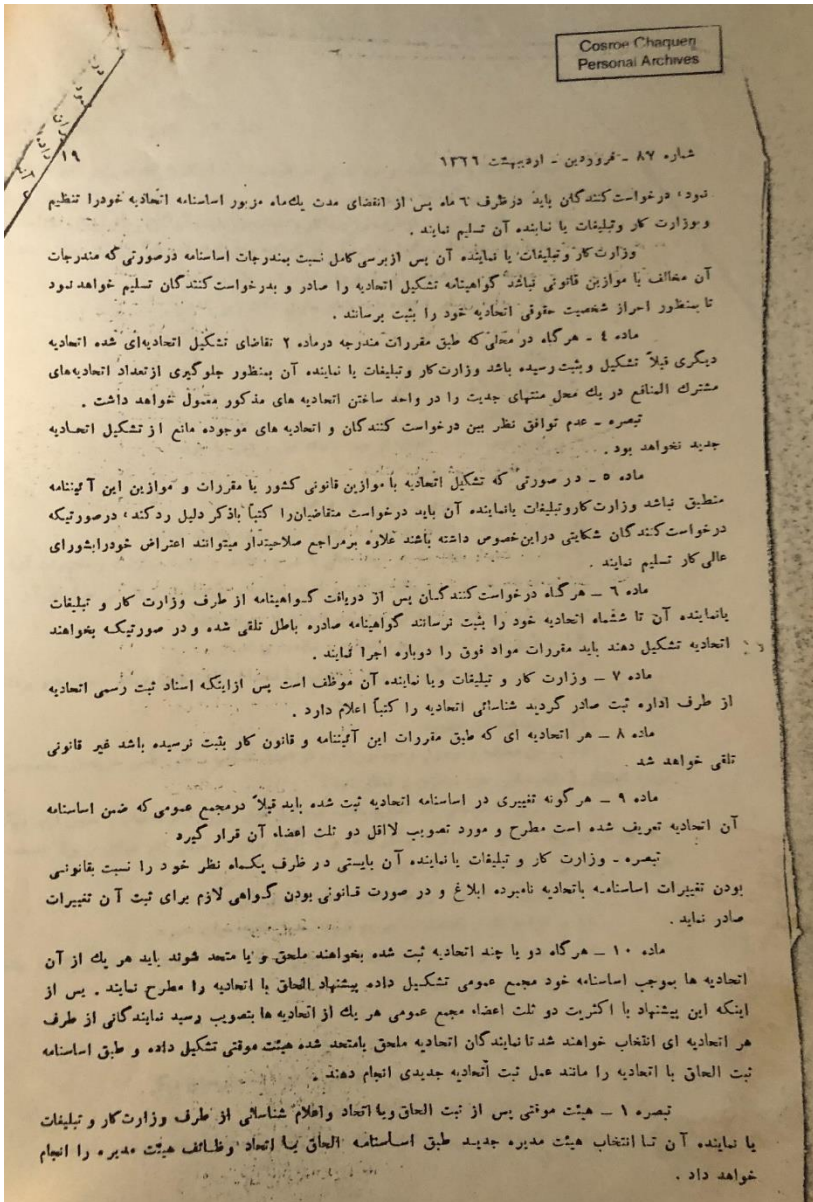 Cosroe Chaqueri
Personal Archives
شماره ۸۷ ـ فروردین ـ اردیبهشت ۱۳۲۶
۱۹
نمود، درخواست‌کنندگان باید درظرف ٦ ماه پس از انقضای مدت یك‌ماه مزبور اساسنامه اتحادیه خودرا تنظیم
وبوزارت کار وتبلیغات یا نماینده آن تسلیم نمایند .
وزارت‌کار وتبلیغات یا نماینده آن پس ازبرسی‌کامل نسبت بمندرجات اساسنامه درصورتی‌که مندرجات
آن مخالف با موازین قانونی نباشد گواهینامه تشکیل اتحادیه را صادر و بدرخواست‌کنندگان تسلیم خواهد نمود
تا بمنظور احراز شخصیت حقوقی اتحادیه خود را بثبت برسانند .
ماده ٤ ـ هرگاه در محلی‌که طبق مقررات مندرجه درماده ۲ تقاضای تشکیل اتحادیه‌ای شده اتحادیه
دیگری قبلاً تشکیل وبثبت رسیده باشد وزارت‌کار وتبلیغات یا نماینده آن بمنظور جلوگیری ازتعداد اتحادیه‌های
مشترك المنافع در یك محل منتهای جدیت را در واحد ساختن اتحادیه های مذکور معمول خواهد داشت .
تبصره ـ عدم توافق نظر بین درخواست کنندگان و اتحادیه های موجوده مانع از تشکیل اتحادیه
جدید نخواهد بود .
ماده ٥ ـ در صورتی که تشکیل اتحادیه با موازین قانونی کشور یا مقررات و موازین این آئیننامه
منطبق نباشد وزارت‌کاروتبلیغات یانماینده آن باید درخواست متقاضیان‌را کتباً باذکر دلیل ردکند، درصورتیکه
درخواست‌کنندگان شکایتی دراین‌خصوص داشته باشند علاوه برمراجع صلاحیتدار میتوانند اعتراض خودرابشورای
عالی‌کار تسلیم نمایند .
ماده ٦ ـ هرگاه درخواست‌کنندگان پس از دریافت گواهینامه از طرف وزارت کار و تبلیغات
یانماینده آن تا ششماه اتحادیه خود را بثبت نرسانند گواهینامه صادره باطل تلقی شده و در صورتیکه بخواهند
اتحادیه تشکیل دهند باید مقررات مواد فوق را دوباره اجرا نمایند .
ماده ۷ ـ وزارت کار و تبلیغات ویا نماینده آن موظف است پس ازاینکه اسناد ثبت رسمی اتحادیه
از طرف اداره ثبت صادر گردید شناسائی اتحادیه را کتباً اعلام دارد .
ماده ۸ ـ هر اتحادیه ای که طبق مقررات این آئیننامه و قانون کار بثبت نرسیده باشد غیر قانونی
تلقی خواهد شد .
ماده ۹ ـ هرگونه تغییری در اساسنامه اتحادیه ثبت شده باید قبلاً درمجمع عمومی‌که ضمن اساسنامه
آن اتحادیه تعریف شده است مطرح و مورد تصویب لااقل دو ثلث اعضاء آن قرار گیرد
تبصره ـ وزارت کار و تبلیغات یا نماینده آن بایستی در ظرف یکماه نظر خود را نسبت بقانونی
بودن تغییرات اساسنامه باتحادیه نامبرده ابلاغ و در صورت قانونی بودن گواهی لازم برای ثبت آن تغییرات
صادر نماید .
ماده ۱۰ ـ هرگاه دو یا چند اتحادیه ثبت شده بخواهند ملحق و یا متحد شوند باید هر یك از آن
اتحادیه ها بموجب اساسنامه خود مجمع عمومی تشکیل داده پیشنهاد الحاق یا اتحادیه را مطرح نمایند . پس از
اینکه این پیشنهاد با اکثریت دو ثلث اعضاء مجمع عمومی هر یك از اتحادیه ها بتصویب رسید نمایندگانی از طرف
هر اتحادیه ای انتخاب خواهند شد تا نمایندگان اتحادیه ملحق یامتحد شده هیئت موقتی تشکیل داده و طبق اساسنامه
ثبت الحاق یا اتحادیه را مانند عمل ثبت اتحادیه جدیدی انجام دهند .
تبصره ۱ ـ هیئت موقتی پس از ثبت الحاق ویا اتحاد واعلام شناسائی از طرف وزارت‌کار و تبلیغات
یا نماینده آن تا انتخاب هیئت مدیره جدید طبق اساسنامه الحاق یا اتحاد وظائف هیئت مدیره را انجام
خواهد داد .